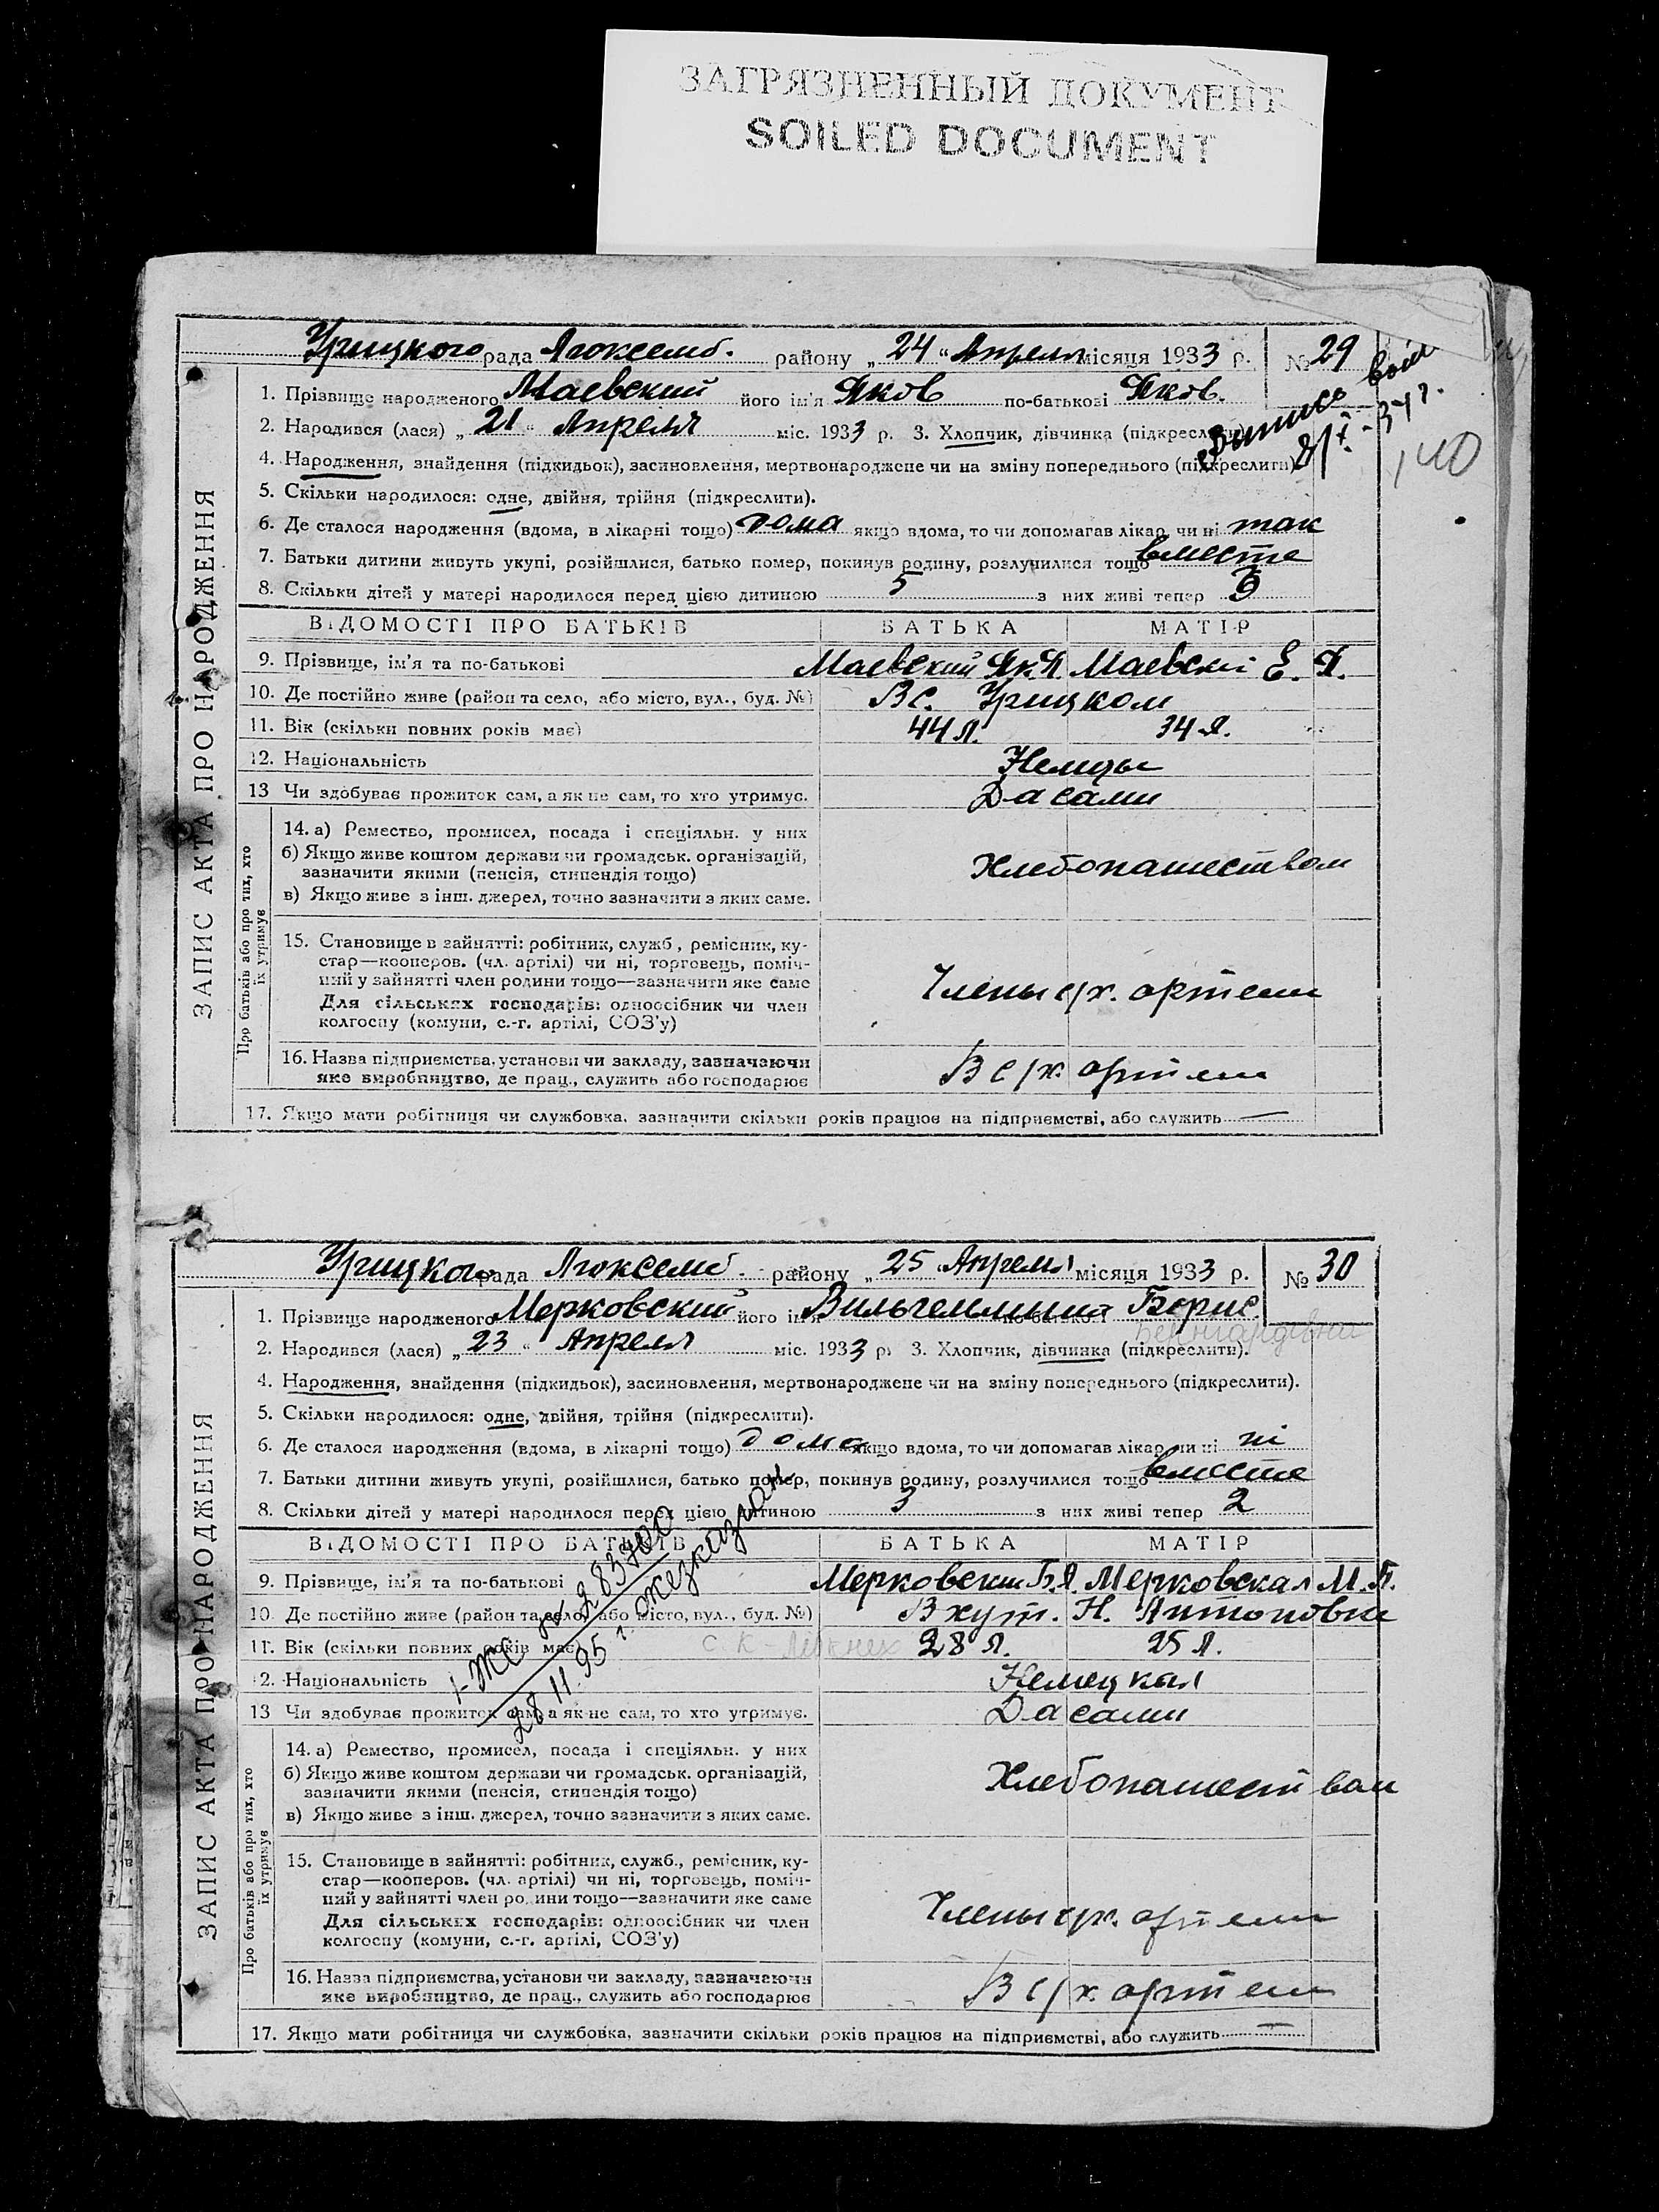 ЗАГРЯЗНЕННЫЙ ДОКУМЕНТ
SOILED DOCUMENT
Урицкого рада Люксемб. району „24“ Апреля місяця 1933 р. № 29
1. Прізвище народженого Маевский його ім'я Яков по-батькові Яков.
2. Народився (лася) „21“ Апреля міс. 1933 р. 3. Хлопчик, дівчинка (підкреслити).
4. Народження, знайдення (підкидьок), засиновлення, мертвонароджене чи на зміну попереднього (підкреслити).
140
5. Скільки народилося: одне, двійня, трійня (підкреслити).
6. Де сталося народження (вдома, в лікарні тощо) дома якщо вдома, то чи допомагав лікар, чи ні так
7. Батьки дитини живуть укупі, розійшлися, батько помер, покинув родину, розлучилися тощо вместе
8. Скільки дітей у матері народилося перед цією дитиною 5 з них живі тепер
ВІДОМОСТІ ПРО БАТЬКІВ БАТЬКА МАТІР
9. Прізвище, ім'я та по-батькові Маевский Як. Я. Маевскі Е. Я.
10. Де постійно живе (район та село, або місто, вул., буд. №) В с. Урицком
11. Вік (скільки повних років має) 44 л. 34 л.
12. Національність Немцы
13 Чи здобуває прожиток сам, а як не сам, то хто утримує. Да сами
14. а) Ремество, промисел, посада і спеціяльн. у них
б) Якщо живе коштом держави чи громадськ. організацій,
зазначити якими (пенсія, стипендія тощо) Хлебопашеством
в) Якщо живе з інш. джерел, точно зазначити з яких саме.
15. Становище в зайнятті: робітник, служб., ремісник, ку-
стар—кооперов. (чл. артілі) чи ні, торговець, поміч-
ний у зайнятті член родини тощо—зазначити яке саме Члены с/х. артели
Для сільських господарів: одноосібник чи член
колгоспу (комуни, с.-г. артілі, СОЗ'у)
16. Назва підприємства, установи чи закладу, зазначаючи
яке виробництво, де прац., служить або господарює В с/х. артели
17. Якщо мати робітниця чи службовка, зазначити скільки років працює на підприємстві, або служить —
ЗАПИС АКТА ПРО НАРОДЖЕННЯ
Про батьків або про тих, хто
їх утримує
Урицкого рада Люксемб. району „25 Апреля місяця 1933 р. № 30
1. Прізвище народженого Мерковский його ім'я Вильгельмина Борис
Бернгардівна
2. Народився (лася) „23“ Апреля міс. 1933 р. 3. Хлопчик, дівчинка (підкреслити).
4. Народження, знайдення (підкидьок), засиновлення, мертвонароджене чи на зміну попереднього (підкреслити).
5. Скільки народилося: одне, двійня, трійня (підкреслити).
6. Де сталося народження (вдома, в лікарні тощо) дома якщо вдома, то чи допомагав лікар, чи ні ні
7. Батьки дитини живуть укупі, розійшлися, батько помер, покинув родину, розлучилися тощо вместе
8. Скільки дітей у матері народилося перед цією дитиною 3 з них живі тепер 2
ВІДОМОСТІ ПРО БАТЬКІВ БАТЬКА МАТІР
9. Прізвище, ім'я та по-батькові Мерковский Б. Я. Мерковская М. Б.
10. Де постійно живе (район та село, або місто, вул., буд. №) В хут. Н. Антоновка
11. Вік (скільки повних років має) 28 л. 25 л.
12. Національність Немецкая
13 Чи здобуває прожиток сам, а як не сам, то хто утримує. Да сами
I-ЖС № 283700
28 11.95 г. Джезказган
14. а) Ремество, промисел, посада і спеціяльн. у них
б) Якщо живе коштом держави чи громадськ. організацій,
зазначити якими (пенсія, стипендія тощо) Хлебопашеством
в) Якщо живе з інш. джерел, точно зазначити з яких саме.
15. Становище в зайнятті: робітник, служб., ремісник, ку-
стар—кооперов. (чл. артілі) чи ні, торговець, поміч-
ний у зайнятті член родини тощо—зазначити яке саме Члены с/х. артели
Для сільських господарів: одноосібник чи член
колгоспу (комуни, с.-г. артілі, СОЗ'у)
16. Назва підприємства, установи чи закладу, зазначаючи
яке виробництво, де прац., служить або господарює В с/х. артели
17. Якщо мати робітниця чи службовка, зазначити скільки років працює на підприємстві, або служить —
ЗАПИС АКТА ПРО НАРОДЖЕННЯ
Про батьків або про тих, хто
їх утримує